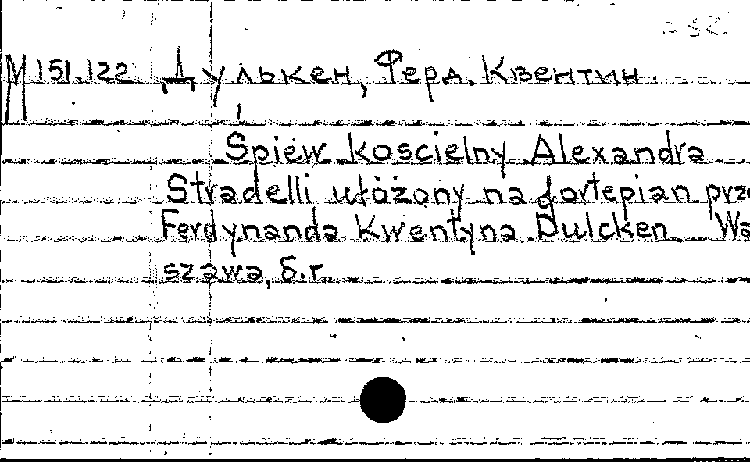 М 151.122 Дулькен, Ферд. Квентин.
Śpiew kościelny Alexandra
Stradelli ułożony na fortepian prze
Ferdynanda Kwentyna Dulcken Wa
szawa, б.г.